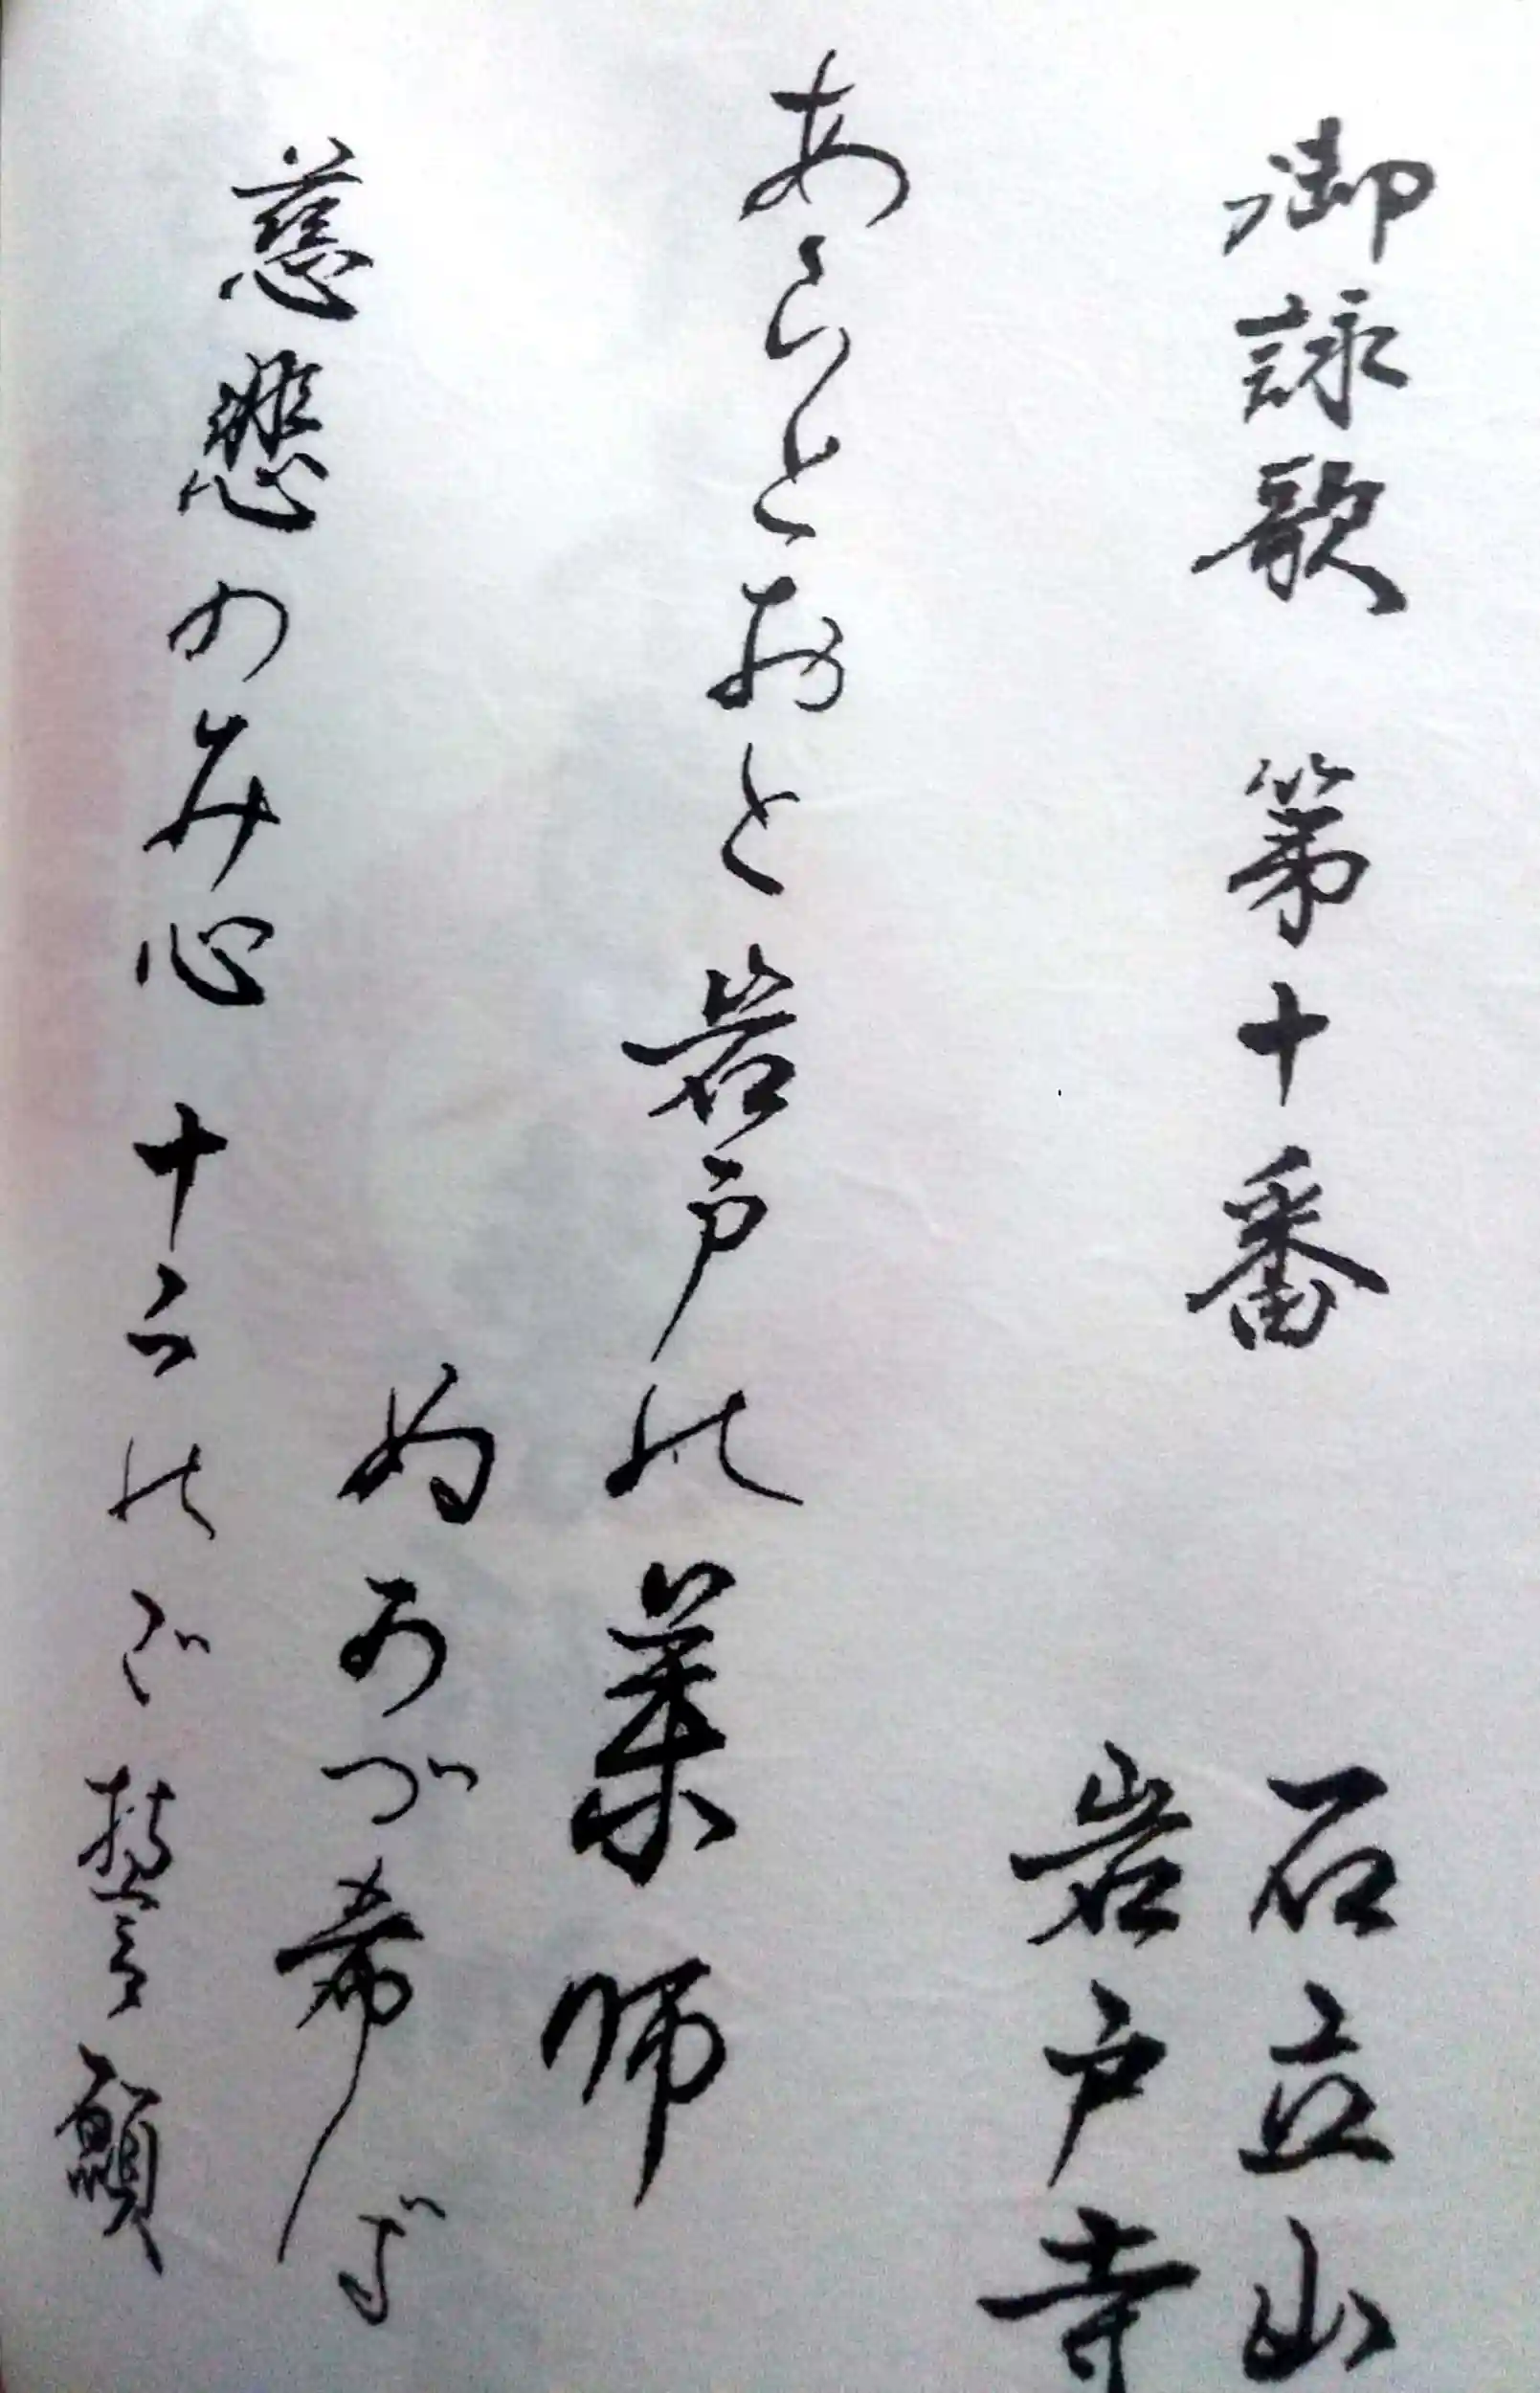 御詠歌 第十番
石立山
岩戸寺
あらとおと岩戸の薬師
ぬかづ希ば
慈悲のみ心 十二のご誓願